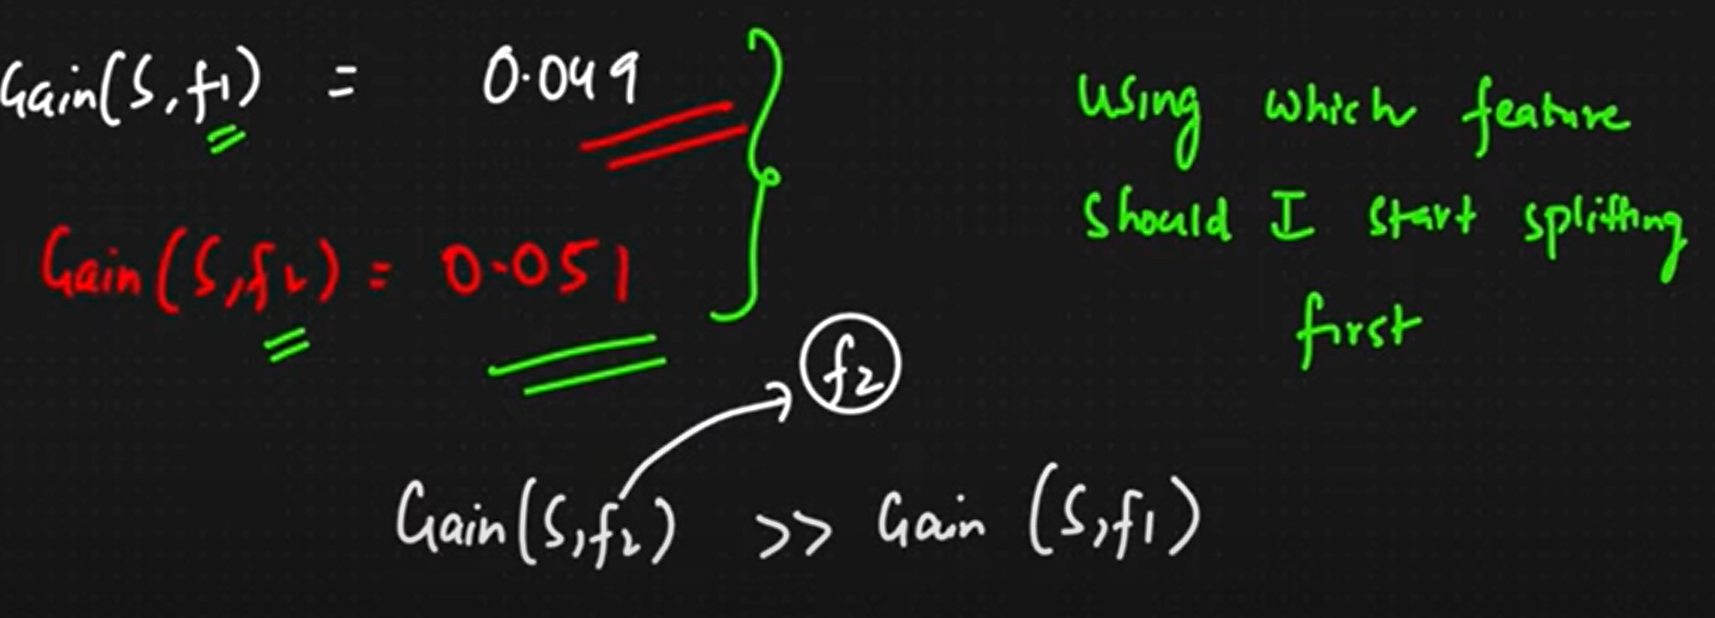 Gain(S,f1) = 0.049
Gain(S,f2) = 0.051
Using which feature
should I start splitting
first
f2
Gain(S,f2) >> Gain (S,f1)